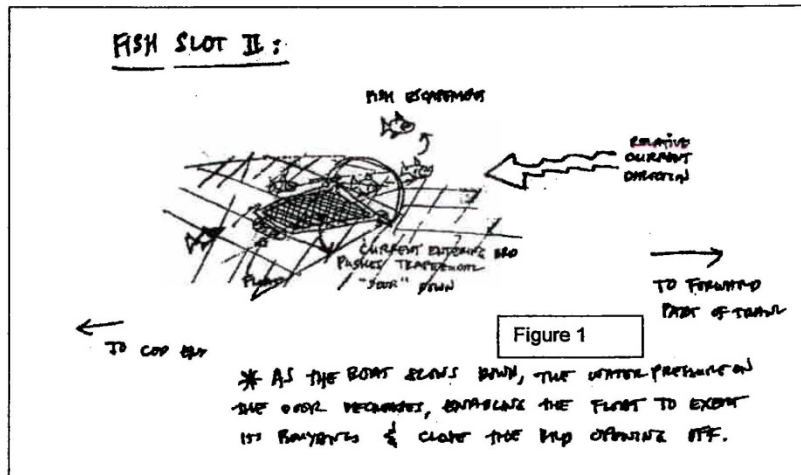 FISH SLOT II:
FISH ESCAPEMENT
RELATIVE
CURRENT
DIRECTION
CURRENT ENTERING BRD
PUSHES TRAPEZOIDAL
"DOOR" DOWN
FLOAT
TO FORWARD
PART OF TRAWL
TO COD END
Figure 1
* AS THE BOAT SLOWS DOWN, THE WATER PRESSURE ON
THE DOOR DECREASES, ENABLING THE FLOAT TO EXERT
ITS BUOYANCY & CLOSE THE BRD OPENING OFF.